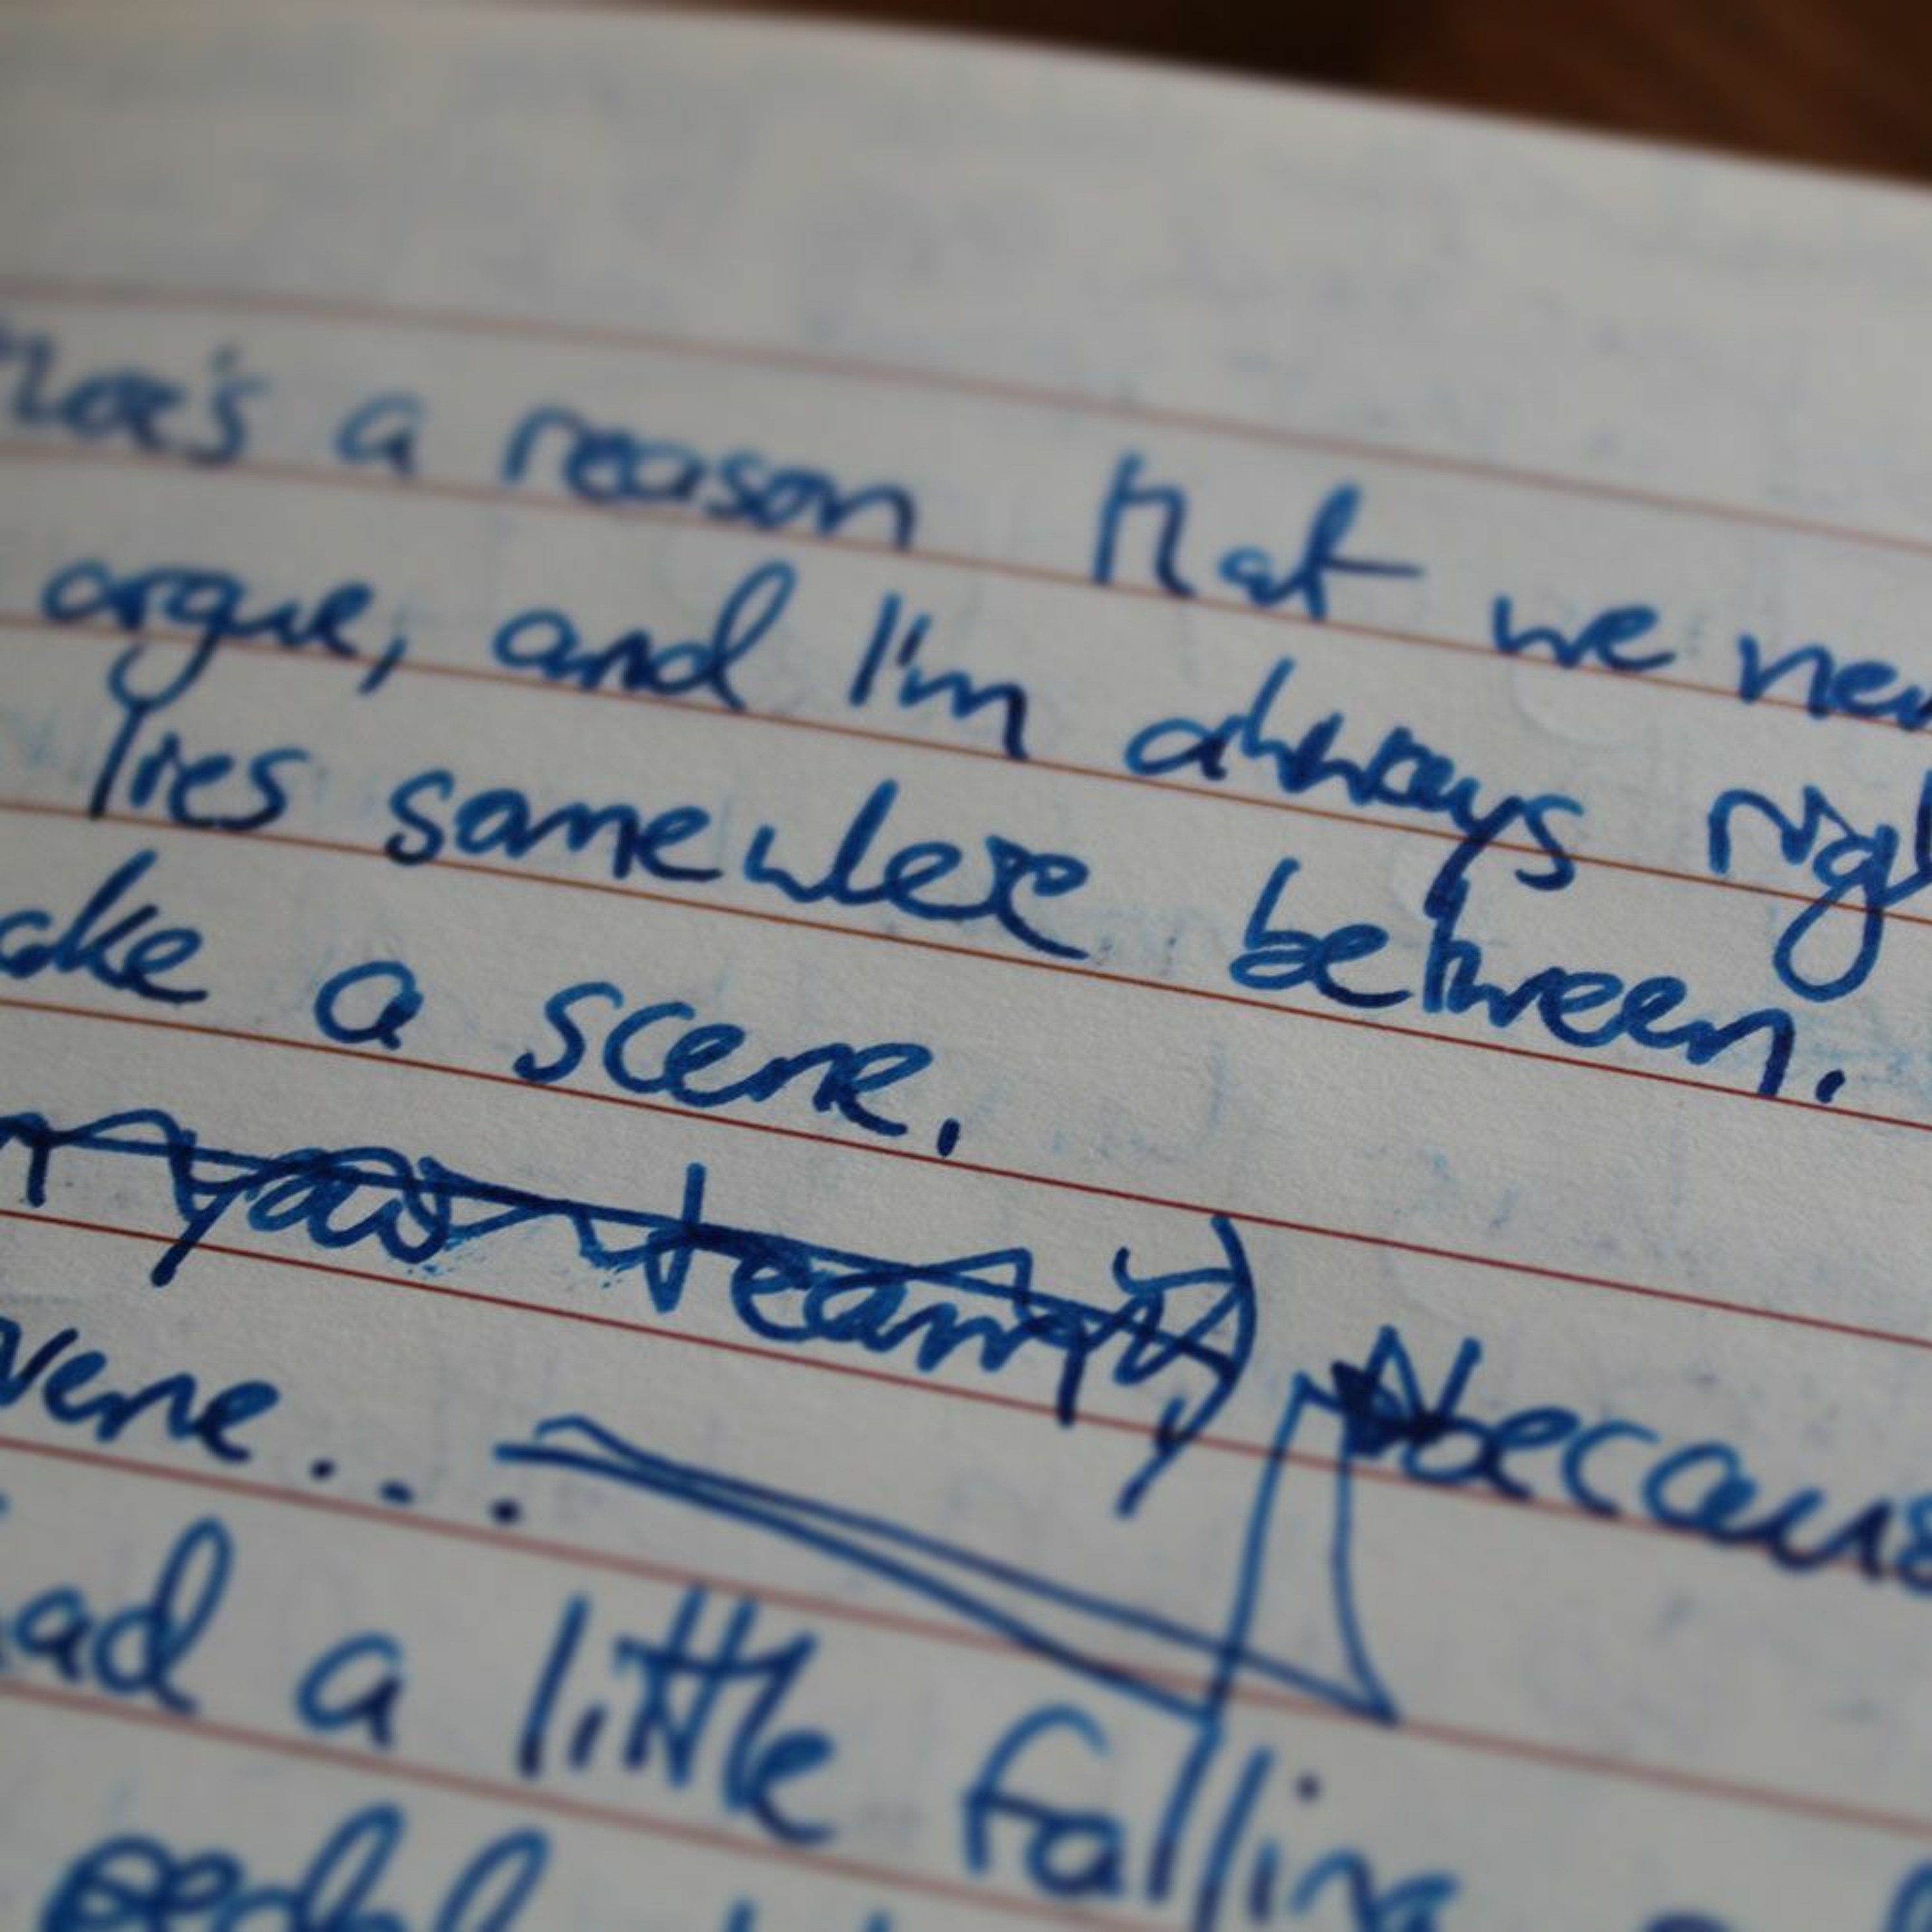 There's a reason that we nev
argue, and I'm always righ
lies somewhere between.
ake a scene.
your team becaus
vene...
had a little falling